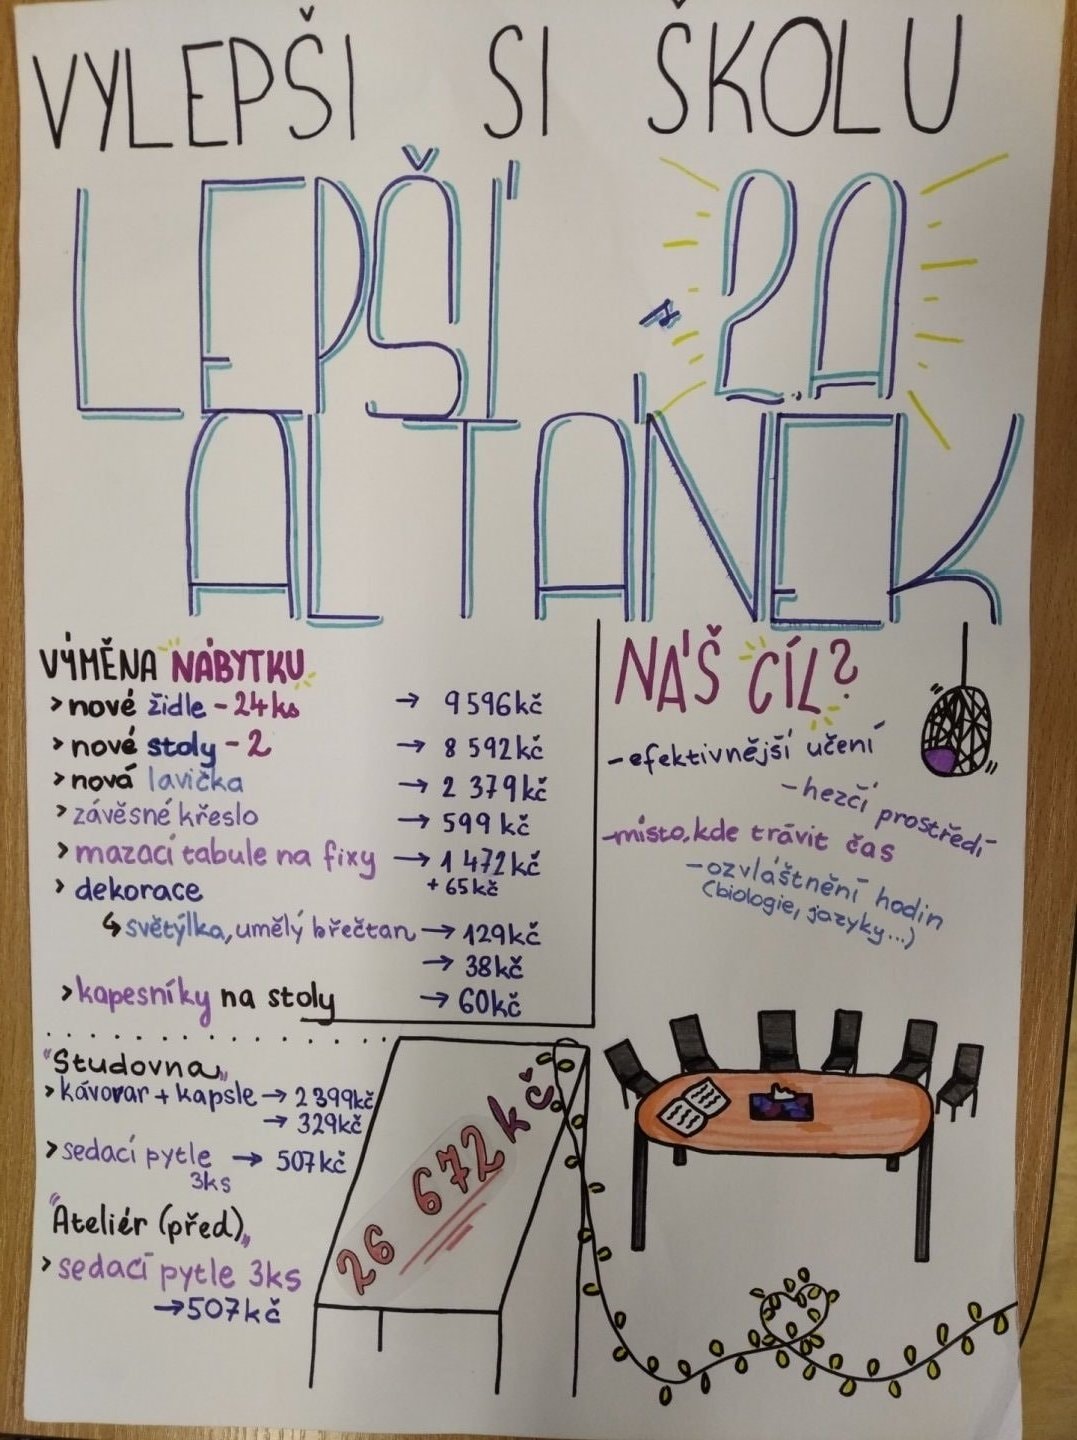 VYLEPŠI SI ŠKOLU
LEPŠÍ 2.A
ALTÁNEK
VÝMĚNA NÁBYTKU
> nové židle - 24ks → 9 596kč
> nové stoly - 2 → 8 592kč
> nová lavička → 2 379kč
> závěsné křeslo → 599kč
> mazací tabule na fixy → 1 472kč
+ 65kč
> dekorace
↳ světýlka, umělý břečťan → 129kč
→ 38kč
> kapesníky na stoly → 60kč
NÁŠ CÍL?
- efektivnější učení
- hezčí prostředí
- místo, kde trávit čas
- ozvláštnění hodin
(biologie, jazyky...)
"Studovna"
> kávovar + kapsle → 2 399kč
→ 329kč
> sedací pytle → 507kč
3ks
"Ateliér (před)"
> sedací pytle 3ks
→ 507kč
26 672 kč